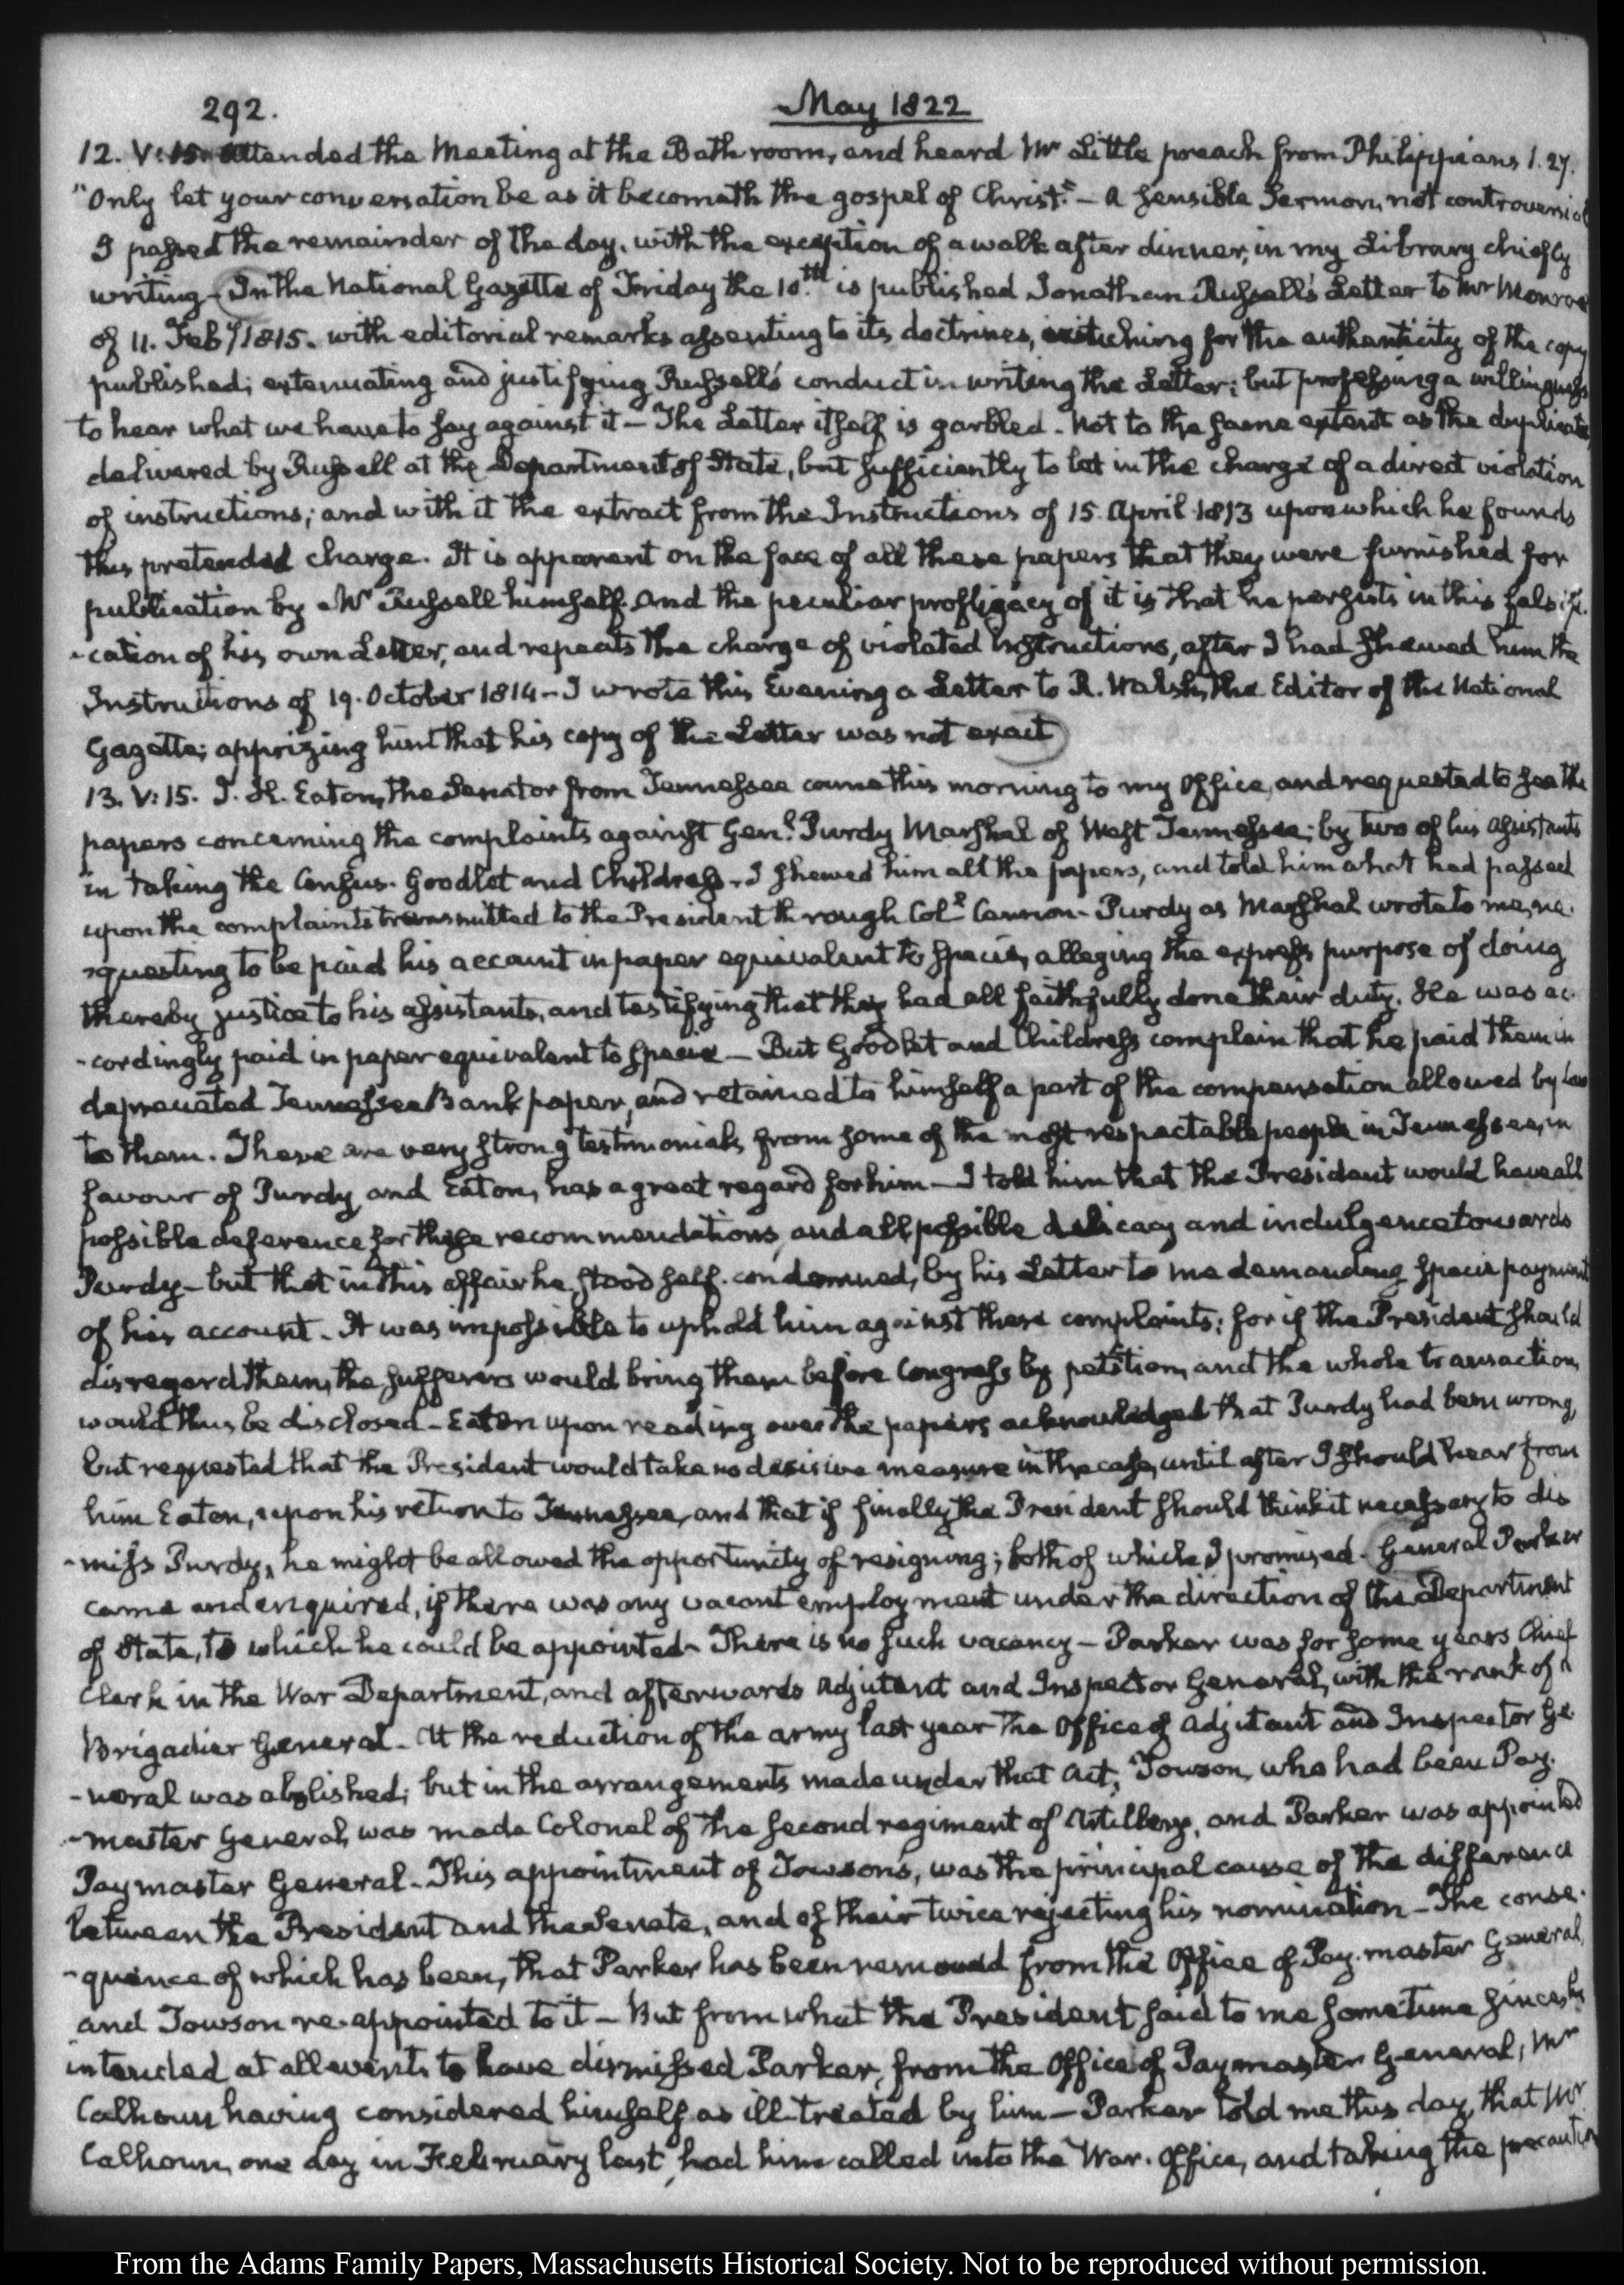 292.
May 1822
12. V:15. Attended the Meeting at the Bath room, and heard Mr Little preach from Philippians 1.27.
"Only let your conversation be as it becometh the gospel of Christ." – A sensible Sermon, not controversial
I passed the remainder of the day, with the exception of a walk after dinner, in my Library chiefly
writing – In the National Gazette of Friday the 10th is published Jonathan Russell's Letter to Mr Monroe
of 11. Feby 1815. with editorial remarks assenting to its doctrines, for the authenticity of the copy
published; extenuating and justifying Russell's conduct in writing the Letter; but professing a willingness
to hear what we have to say against it – The Letter itself is garbled – Not to the same extent as the duplicate
delivered by Russell at the Department of State, but sufficiently to let in the charge of a direct violation
of instructions; and with it the extract from the Instructions of 15. April 1813 upon which he founds
this pretended charge. It is apparent on the face of all these papers that they were furnished for
publication by Mr Russell himself. And the peculiar profligacy of it is that he persists in this falsifi-
-cation of his own Letter, and repeats the charge of violated Instructions, after I had shewed him the
Instructions of 19. October 1814 – I wrote this Evening a Letter to R. Walsh, the Editor of the National
Gazette; apprizing him that his copy of the Letter was not exact
13. V:15. J. H. Eaton, the Senator from Tennessee came this morning to my Office, and requested to see the
papers concerning the complaints against Genl. Purdy Marshal of West Tennessee; by two of his assistants
in taking the Census. Goodlet and Childress – I shewed him all the papers, and told him what had passed
upon the complaints transmitted to the President through Coll. Cannon – Purdy as Marshal wrote to me, re-
-questing to be paid his account in paper equivalent to specie, alleging the express purpose of doing
thereby justice to his assistants, and testifying that they had all faithfully done their duty. He was ac-
-cordingly paid in paper equivalent to specie – But Goodlet and Childress complain that he paid them in
depreciated Tennessee Bank paper, and retained to himself a part of the compensation allowed by Law
to them. There are very strong testimonials, from some of the most respectable people in Tennessee, in
favour of Purdy, and Eaton, has a great regard for him – I told him that the President would have all
possible deference for these recommendations, and all possible delicacy and indulgence towards
Purdy – but that in this affair he stood self-condemned, by his Letter to me demanding specie payment
of his account – It was impossible to uphold him against these complaints; for if the President should
disregard them, the sufferers would bring them before Congress by petition, and the whole transaction
would thus be disclosed – Eaton upon reading over the papers acknowledged that Purdy had been wrong,
but requested that the President would take no decisive measure in the case, until after I should hear from
him Eaton, upon his return to Tennessee, and that if finally the President should think it necessary to dis
-miss Purdy, he might be allowed the opportunity of resigning; both of which I promised – General Parker
came and enquired, if there was any vacant employment under the direction of the Department
of State, to which he could be appointed – There is no such vacancy – Parker was for some years Chief
Clerk in the War Department, and afterwards Adjutant and Inspector General, with the rank of a
Brigadier General – At the reduction of the army last year the Office of Adjutant and Inspector Ge-
-neral was abolished; but in the arrangements made under that Act, Towson, who had been Pay-
-master General, was made Colonel of the second regiment of Artillery, and Parker was appointed
Paymaster General – This appointment of Towson's, was the principal cause of the difference
between the President and the Senate, and of their twice rejecting his nomination – The conse-
-quence of which has been, that Parker has been removed from the Office of Pay-master General,
and Towson re-appointed to it – But from what the President said to me sometime since, he
intended at all events to have dismissed Parker, from the Office of Paymaster General, Mr
Calhoun having considered himself as ill-treated by him – Parker told me this day, that Mr
Calhoun, one day in February last, had him called into the War-Office, and taking the precaution
From the Adams Family Papers, Massachusetts Historical Society. Not to be reproduced without permission.